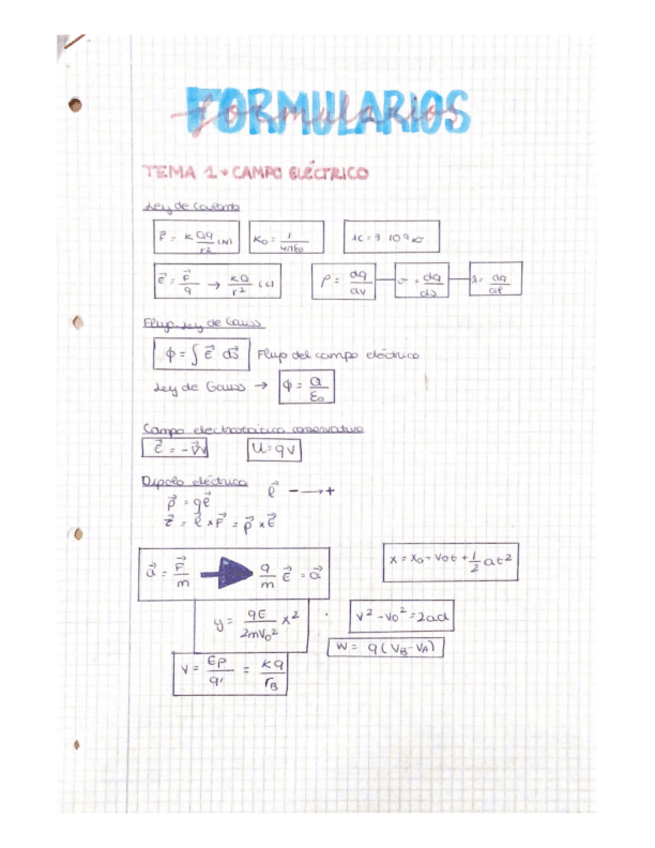 FORMULARIOS
formularios
TEMA 1 → CAMPO ELÉCTRICO
Ley de Coulomb
F = K Qq/r² (N)   K₀ = 1/4πε₀
E⃗ = F⃗/q → KQ/r²   ρ = dq/dv — σ = dq/ds — λ = dq/dl
Flujo. Ley de Gauss
Φ = ∫ E⃗ · ds⃗   Flujo del campo eléctrico
Ley de Gauss → Φ = Q/ε₀
Campo electrostático conservativo
E⃗ = -∇⃗V   U = qV
Dipolo eléctrico   ℓ⃗ - → +
p⃗ = qℓ⃗
τ⃗ = ℓ⃗ × F⃗ = p⃗ × E⃗
a⃗ = F⃗/m → q/m E⃗ = a⃗   x = x₀ + v₀t + 1/2 at²
y = qE/2mv₀² x²   v² - v₀² = 2ad
W = q(V_B - V_A)
V = Ep/q' = kq/r_B